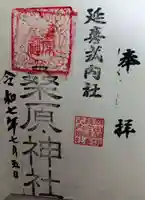 奉拝
延喜式内社
桑原神社
令和七年七月五日